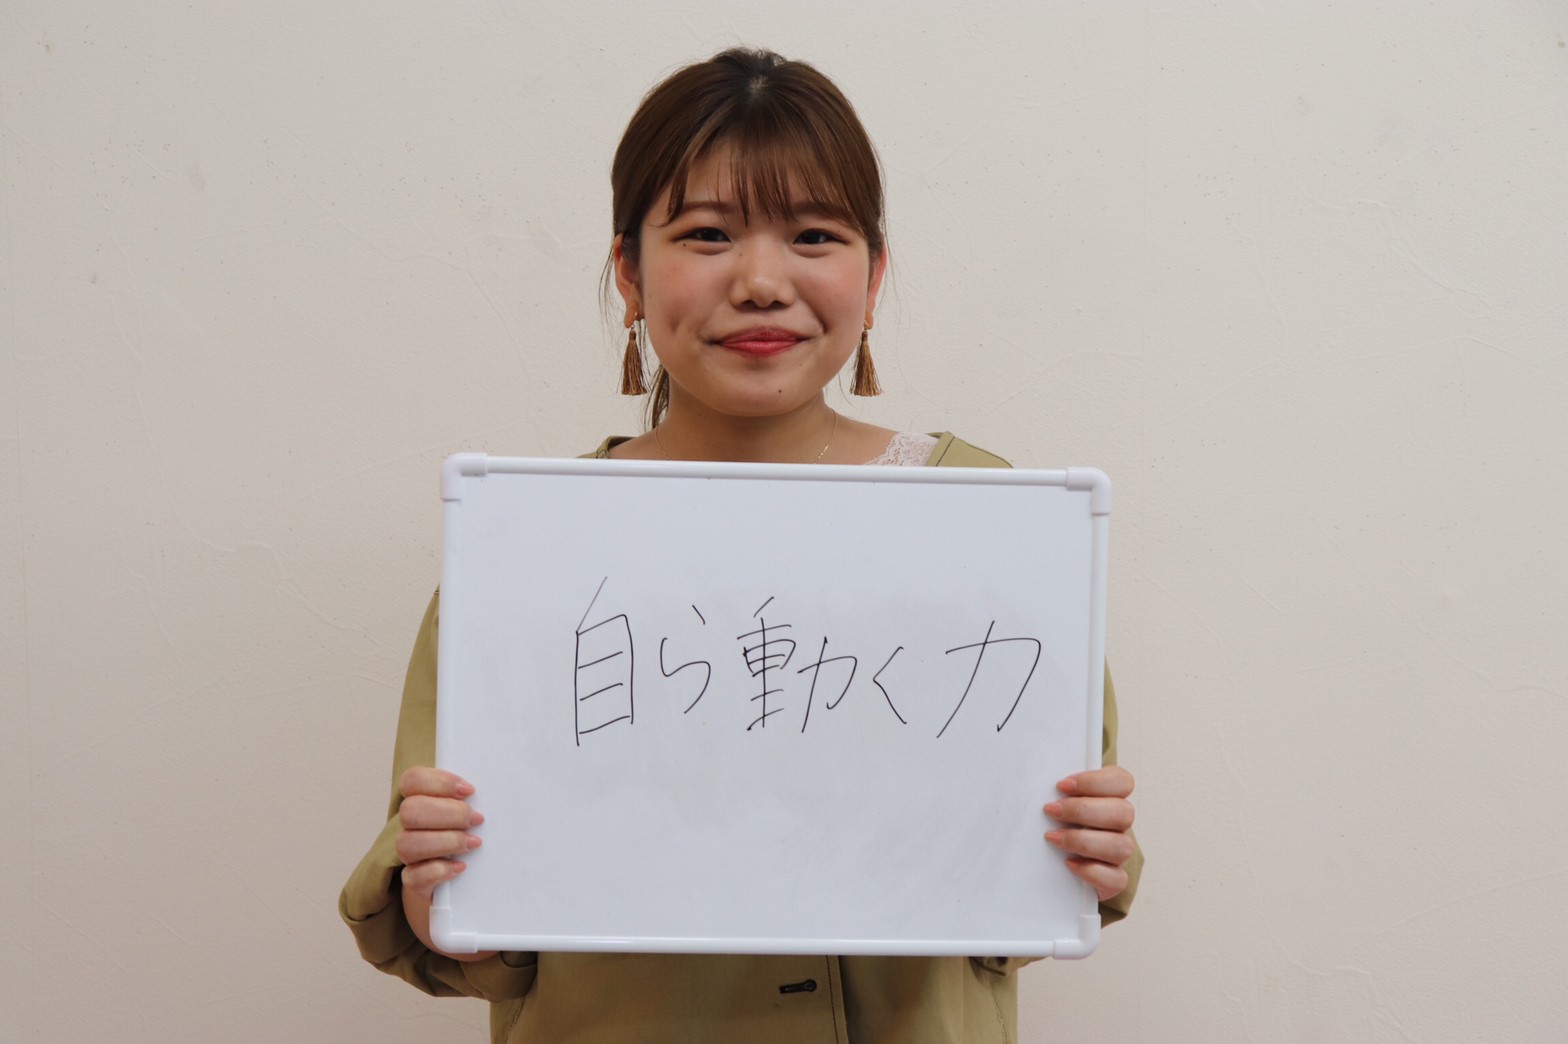 自ら動く力